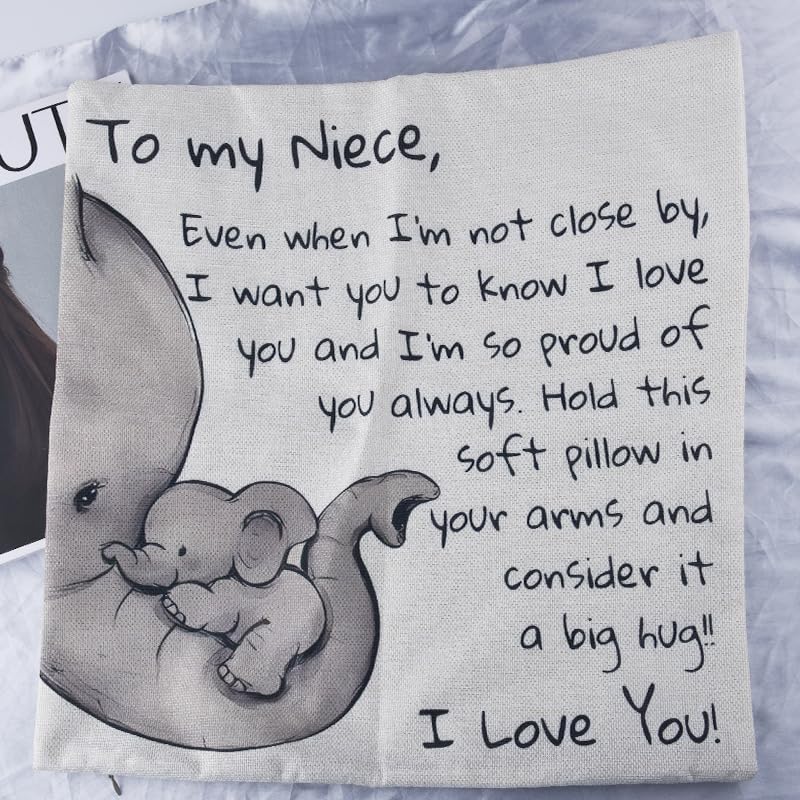 UT
To my Niece,
Even when I'm not close by,
I want you to know I love
you and I'm so proud of
you always. Hold this
soft pillow in
your arms and
consider it
a big hug!!
I Love You!